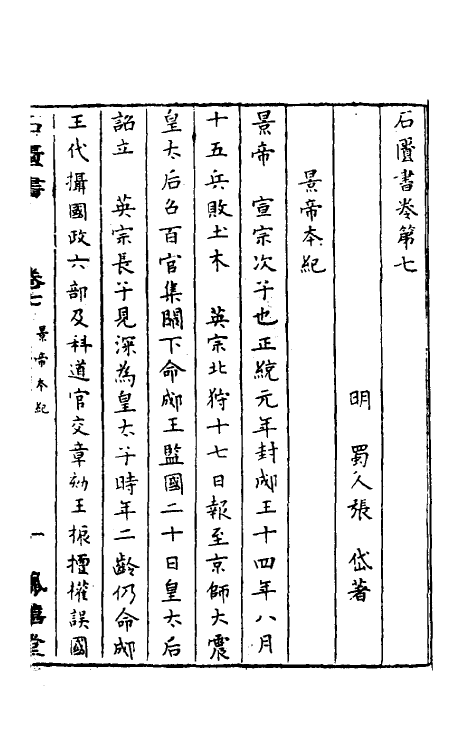 石匱書卷第七
明　蜀人張　岱著
景帝本紀
景帝　宣宗次子也正統元年封郕王十四年八月
十五兵敗土木　英宗北狩十七日報至京師大震
皇太后召百官集闕下命郕王監國二十日皇太后
詔立　英宗長子見深為皇太子時年二齡仍命郕
王代攝國政六部及科道官交章劾王振擅權誤國
石匱書　卷七　景帝本紀　一　鳳嬉堂